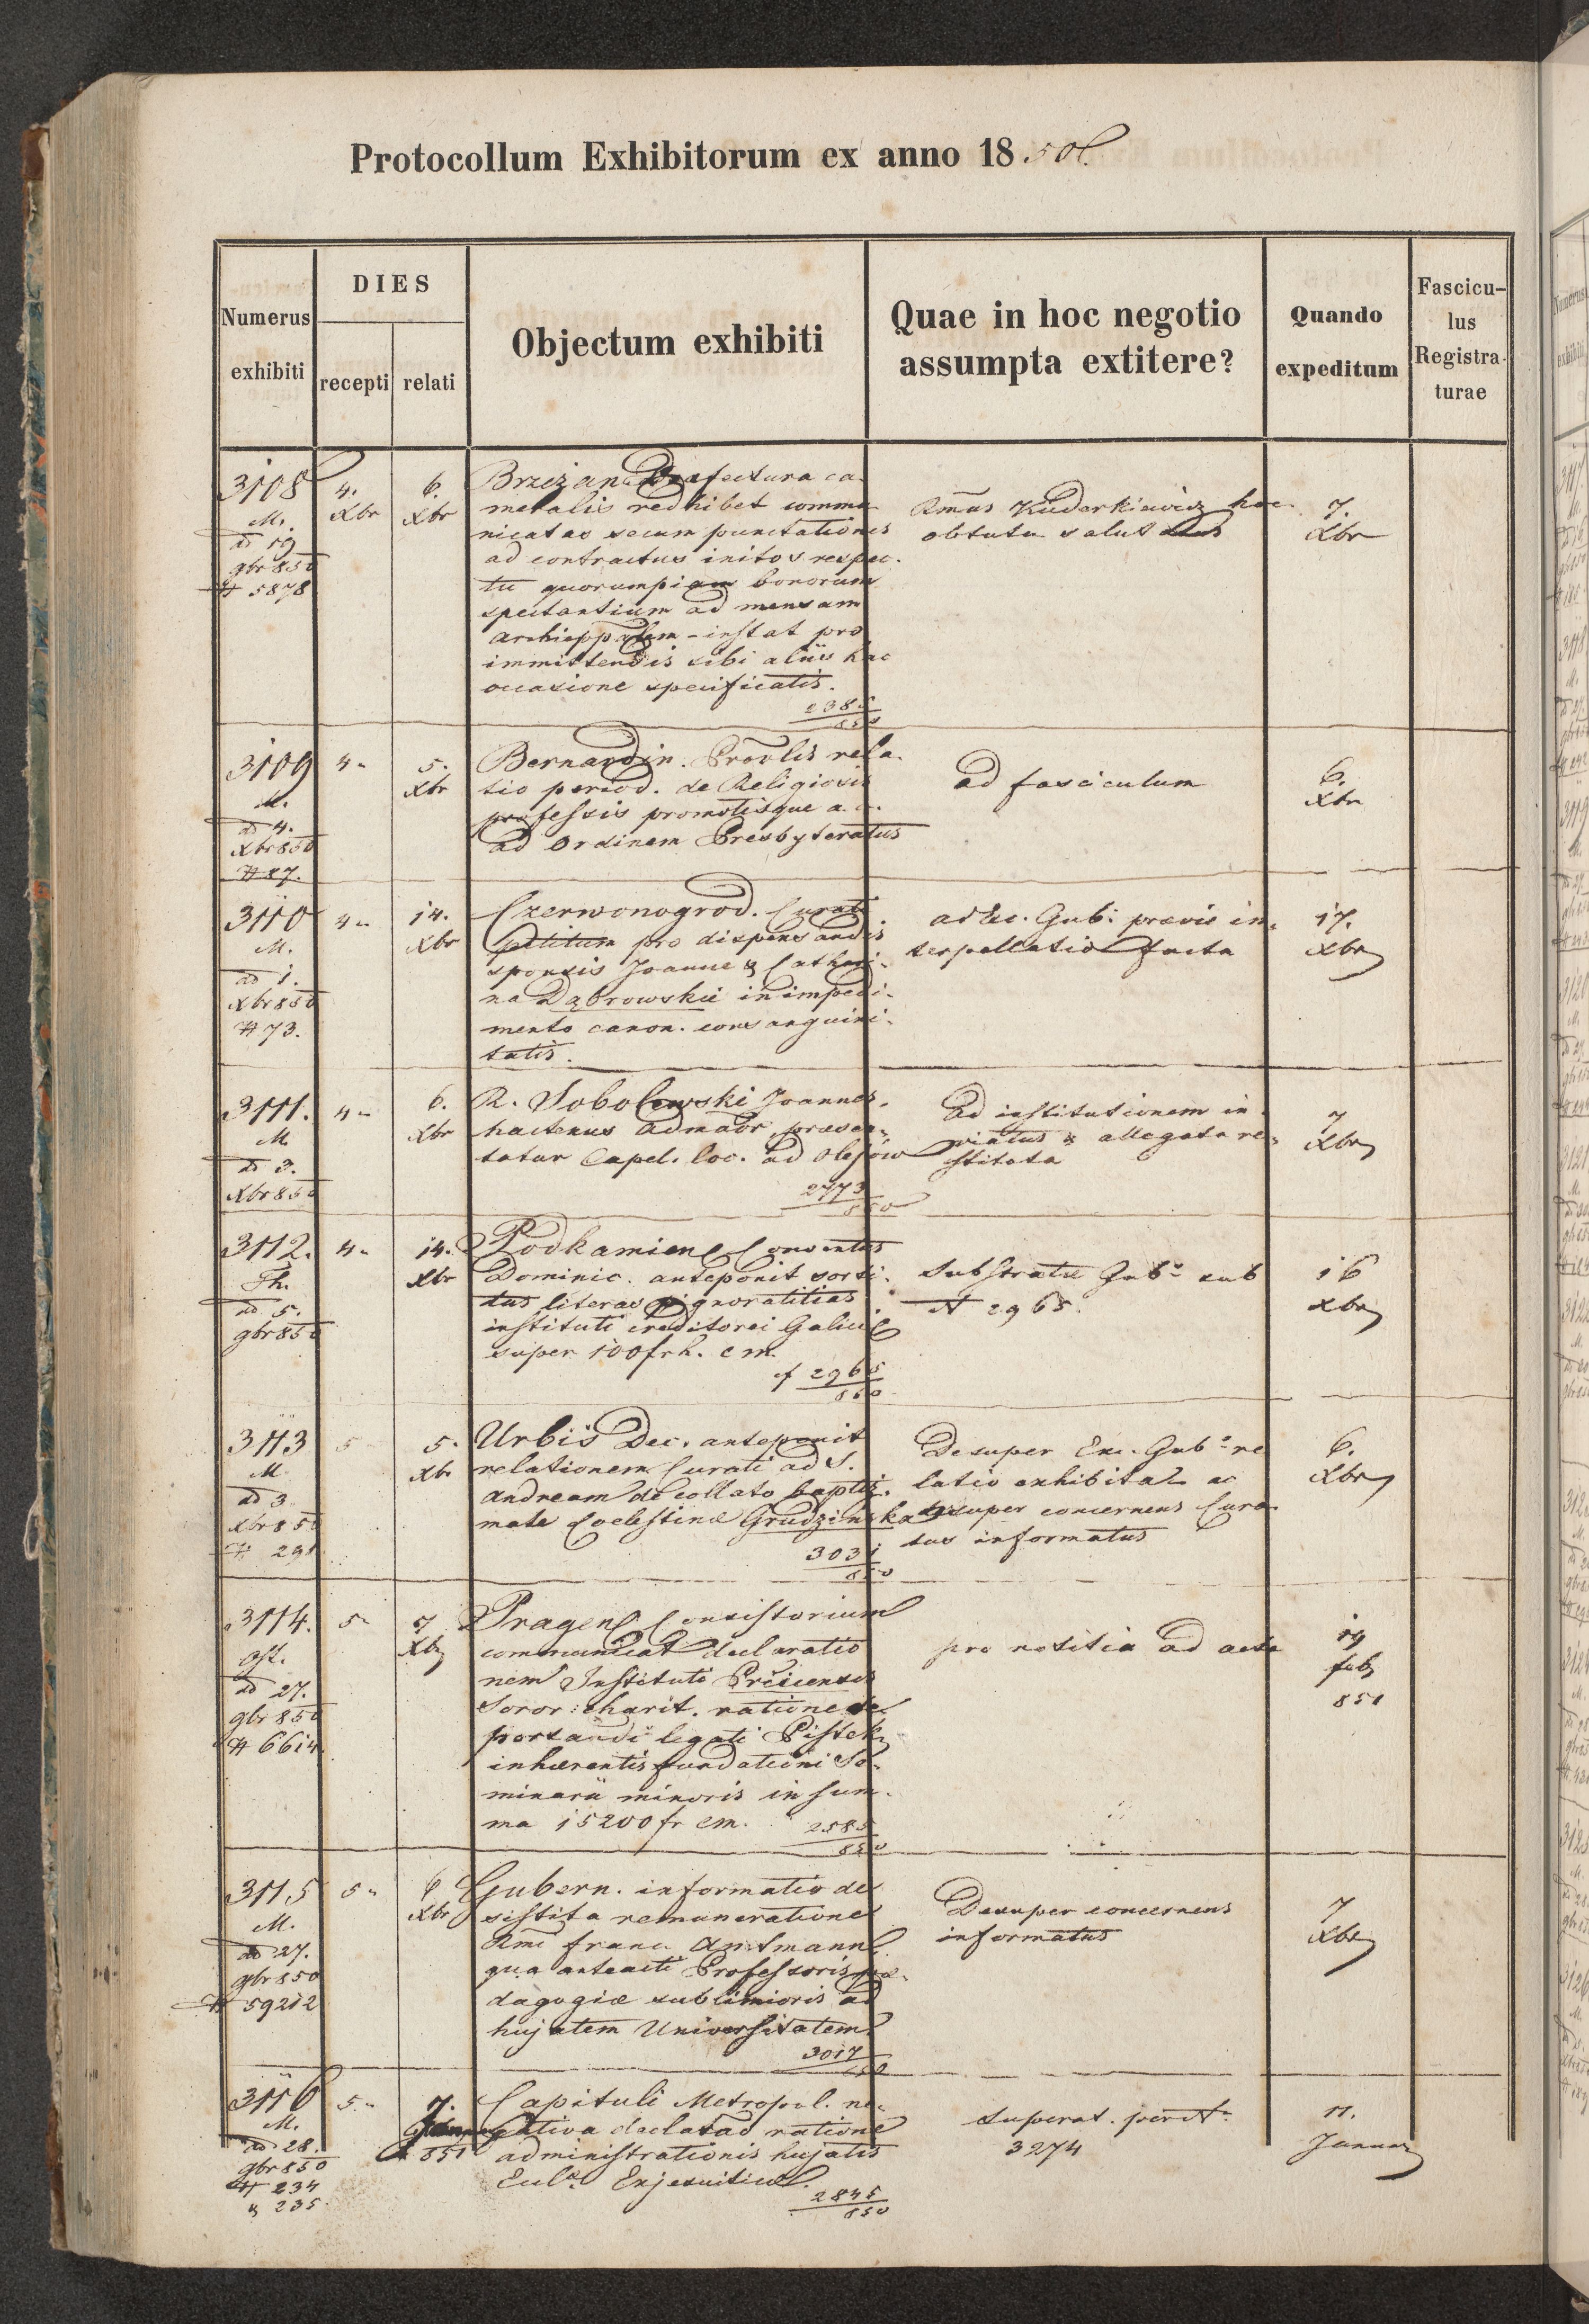 Protocollum Exhibitorum ex anno 1850
Numerus exhibiti
DIES
recepti
relati
Objectum exhibiti
Quae in hoc negotio assumpta extitere?
Quando expeditum
Fascicu-
lus
Registra-
turae
3108
M.
ad 19
9br 850
# 5878
4.
Xbr
6.
Xbr
Brzezan. Praefectura ca-
meralis redhibet commu-
nicatas secum punctationes
ad contractus initos respec-
tu quorumpiam bonorum
spectantium ad mensam
archieppalem - instat pro
immittendis sibi aliis hac
occasione specificatis.
2385
850
Rmus Kuderkiewicz hoc
obtutu salutatus
7.
Xbr
3109
M.
ad 4.
Xbr 850
# 87.
4 "
5.
Xbr
Bernardin. Provlis rela-
tio period. de Religiosis
professis promotisque a. c.
ad Ordinem Presbyteratus
ad fasciculum
6.
Xbr
3110
M.
ad 1.
Xbr 850
# 73.
4 "
14.
Xbr
Czerwonogrod. Curati
petitum pro dispensandis
sponsis Joanne & Cathari-
na Dąbrowskie in impedi-
mento canon. consanguini-
tatis.
ad Ex. Gub. praevie in-
terpellatio facta
17.
Xbr
3111.
M
ad 3.
Xbr 850
4 "
6.
Xbr
R. Sobolewski Joannes,
hactenus admaor praesen-
tatur Capel. loc. ad Olejów
2773
850
Ad institutionem in-
viatus & allegata re-
stituta
7
Xbr
3112.
Th.
ad 5.
9br 850
4 "
14.
Xbr
Podkamien Conventus
Dominic. anteponit sorti-
tus literas pignoratitias
instituti creditorei Galici
super 100 frh. cm.
f 2965
850
Substratae Gub. sub
N 2965.
16
Xbr
3113
M
ad 3
Xbr 850
# 291
5
5.
Xbr
Urbis Dec. anteponit
relationem Curati ad S.
Andream de collato baptis-
mate Coelestinae Grudzinska
3031
850
Desuper Exc. Gub. re
latio exhibita ac
desuper concernens Cura-
tus informatus
6.
Xbr
3114.
ad 27.
9br 850
# 6614
5 "
7
Xbr
Pragens Consistorium
communicat declaratio
nem Instituti
Soror: charit. ratione de
portandi legati Pistek
inhaerentis fundationi Se-
minarii minoris in sum-
ma 15200 fr cm.
2585
850
pro notitia ad acta
19
feb
851
3115
M.
ad 27.
9br 850
# 59212
5 "
6
Xbr
Gubern. informatio de
sistita remuneratione
Rmi Franc.
qua anteacti Professoris pae-
dagogiae sublimioris ad
hujatem Universitatem
3017
850
Desuper concernens
informatus
7
Xbr
3116
M.
ad 28.
9br 850
# 234
& 235.
5 "
7.
851
Capituli Metropol. ne-
gativa declatao ratione
administrationis hujatis
Exjesuitic.
2845
850
superat. per N.
3274
11.
Januar